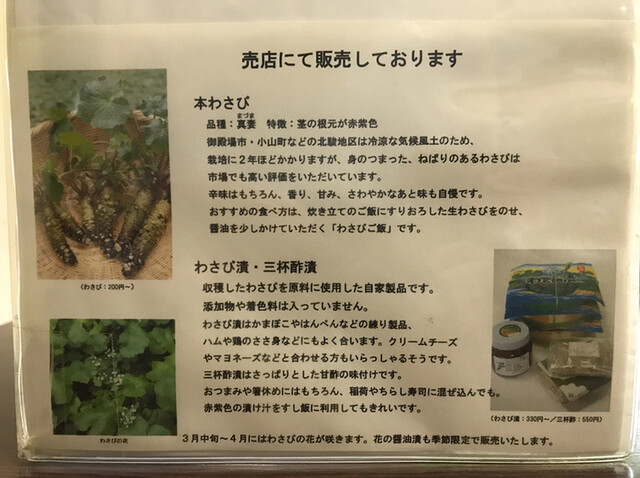 売店にて販売しております
本わさび
まづま
品種：真妻　特徴：茎の根元が赤紫色
御殿場市・小山町などの北駿地区は冷涼な気候風土のため、
栽培に２年ほどかかりますが、身のつまった、ねばりのあるわさびは
市場でも高い評価をいただいています。
辛味はもちろん、香り、甘み、さわやかなあと味も自慢です。
おすすめの食べ方は、炊き立てのご飯にすりおろした生わさびをのせ、
醤油を少しかけていただく「わさびご飯」です。
（わさび：200円～）
わさび漬・三杯酢漬
収穫したわさびを原料に使用した自家製品です。
添加物や着色料は入っていません。
わさび漬はかまぼこやはんぺんなどの練り製品、
ハムや鶏のささ身などにもよく合います。クリームチーズ
やマヨネーズなどと合わせる方もいらっしゃるそうです。
三杯酢漬はさっぱりとした甘酢の味付けです。
おつまみや箸休めにはもちろん、稲荷やちらし寿司に混ぜ込んでも。
赤紫色の漬け汁をすし飯に利用してもきれいです。
（わさび漬：330円～／三杯酢：550円）
わさびの花
３月中旬～４月にはわさびの花が咲きます。花の醤油漬も季節限定で販売いたします。